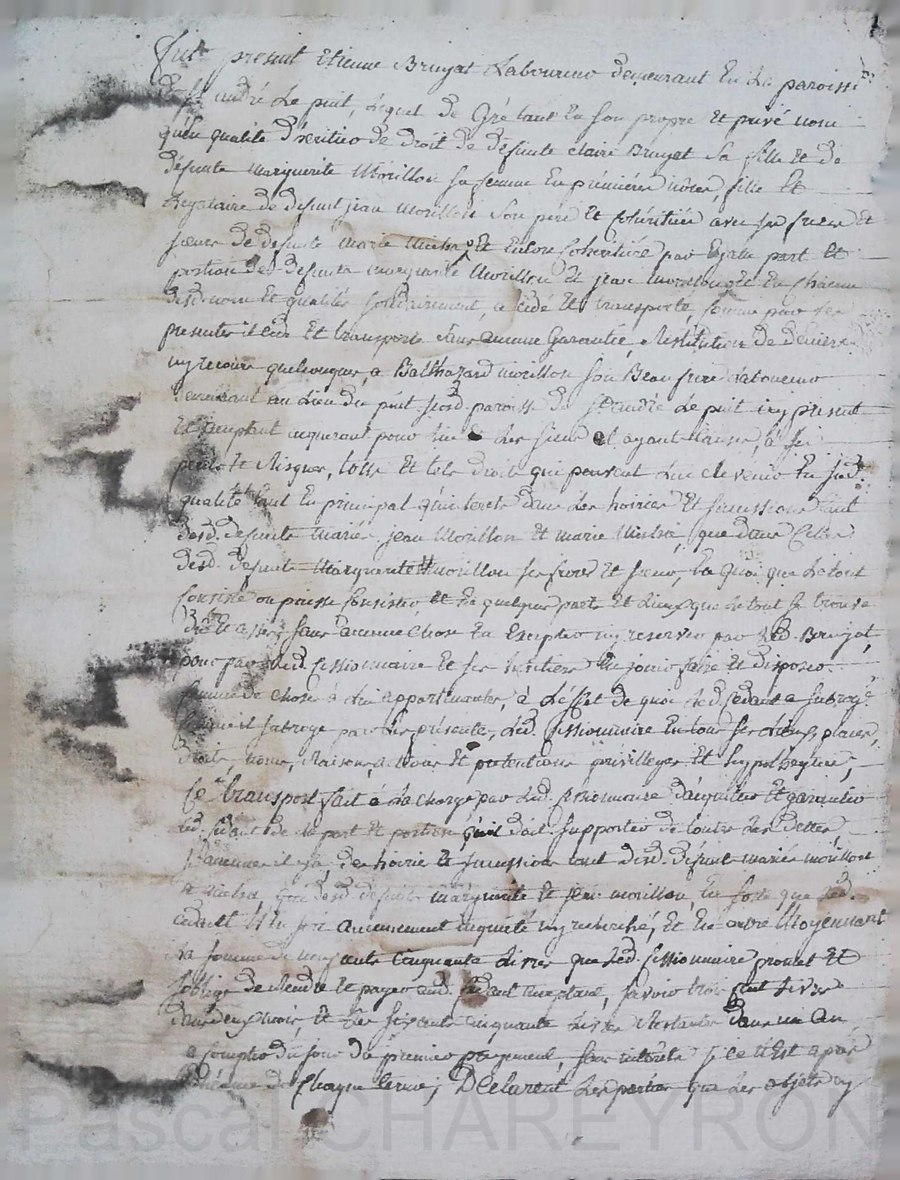 Fut present Etienne Bruyat Laboureur demeurant En La paroisse
De St andré Le puit, Lequel de Gré tant En son propre Et privé nom
qu'En qualité d'heritier de droit de defunte claire Bruyat Sa fille Et de
defunte Marguerite Morillon sa femme En premieres nôces, fille Et
Legataire de defunt jean Morillon Son pere Et Cohéritiere avec ses freres Et
soeurs de defunte Marie Et Encore Cohéritiere par Egale part Et
portion desd. defunts marguerite Morillon Et jean En chacun
desd. nom Et qualités solidairement, a cedé Et transporté, comme par ces
presentes il cede Et transporte sans aucune Garantie, Restitution de deniers
ny recours quelconques, a Balthazard morillon son Beau frere Laboureur
demeurant au Lieu du puit susd. paroisse de St andré Le puit icy present
Et acceptant acquerant pour Lui Et Les siens Et ayant Causes, à ses
perils Et Risques, tous Et tels droits qui peuvent Lui Obvenir En sad.
qualité tant En principal qu'interets dans Les hoiries Et successions tant
desd. defunts mariés jean Morillon Et marie que dans Celles
desd. defunts Marguerite morillon ses freres Et soeurs, En quoi que Le tout
Consiste ou puisse Consister, Et En quelques parts Et Lieux que Le tout se trouve
sans aucune chose En Excepter ny reserver par Led. Bruyat,
pour par Led. Cessionnaire Et ses heritiers En jouir faire Et disposer
comme de chose à Lui appartenante, à L'Effet de quoi Led. Cedant a subrogé
Comme il subroge par Les présentes, Led. Cessionnaire En tous ses places,
droits, noms, Raisons, actions Et pretentions privilleges Et hypotheques,
Ce transport fait à La charge par Led. Cessionnaire d'acquitter Et garantir
Led. Cedant de la part Et portion qu'il doit supporter de toutes Les dettes
aucunes il y a, des hoiries Et succession tant desd. defunts mariés morillon
Et que desd. defunts marguerite Et jean morillon, En sorte que Led.
Cedant N'En soit aucunement inquieté ny recherché, Et En outre Moyennant
La somme de neuf cents Cinquante Livres que Led. Cessionnaire promet Et
s'oblige de Rendre Et payer aud. Cedant acceptant, sçavoir trois cent Livres
dans deux mois, Et Les six cents cinquante Livres Restantes dans un An
a Compter du jour du premier payement sans interêts si ce n'Est après
de Chaque terme; Declarent Les parties que Les objets cy
Pascal CHAREYRON